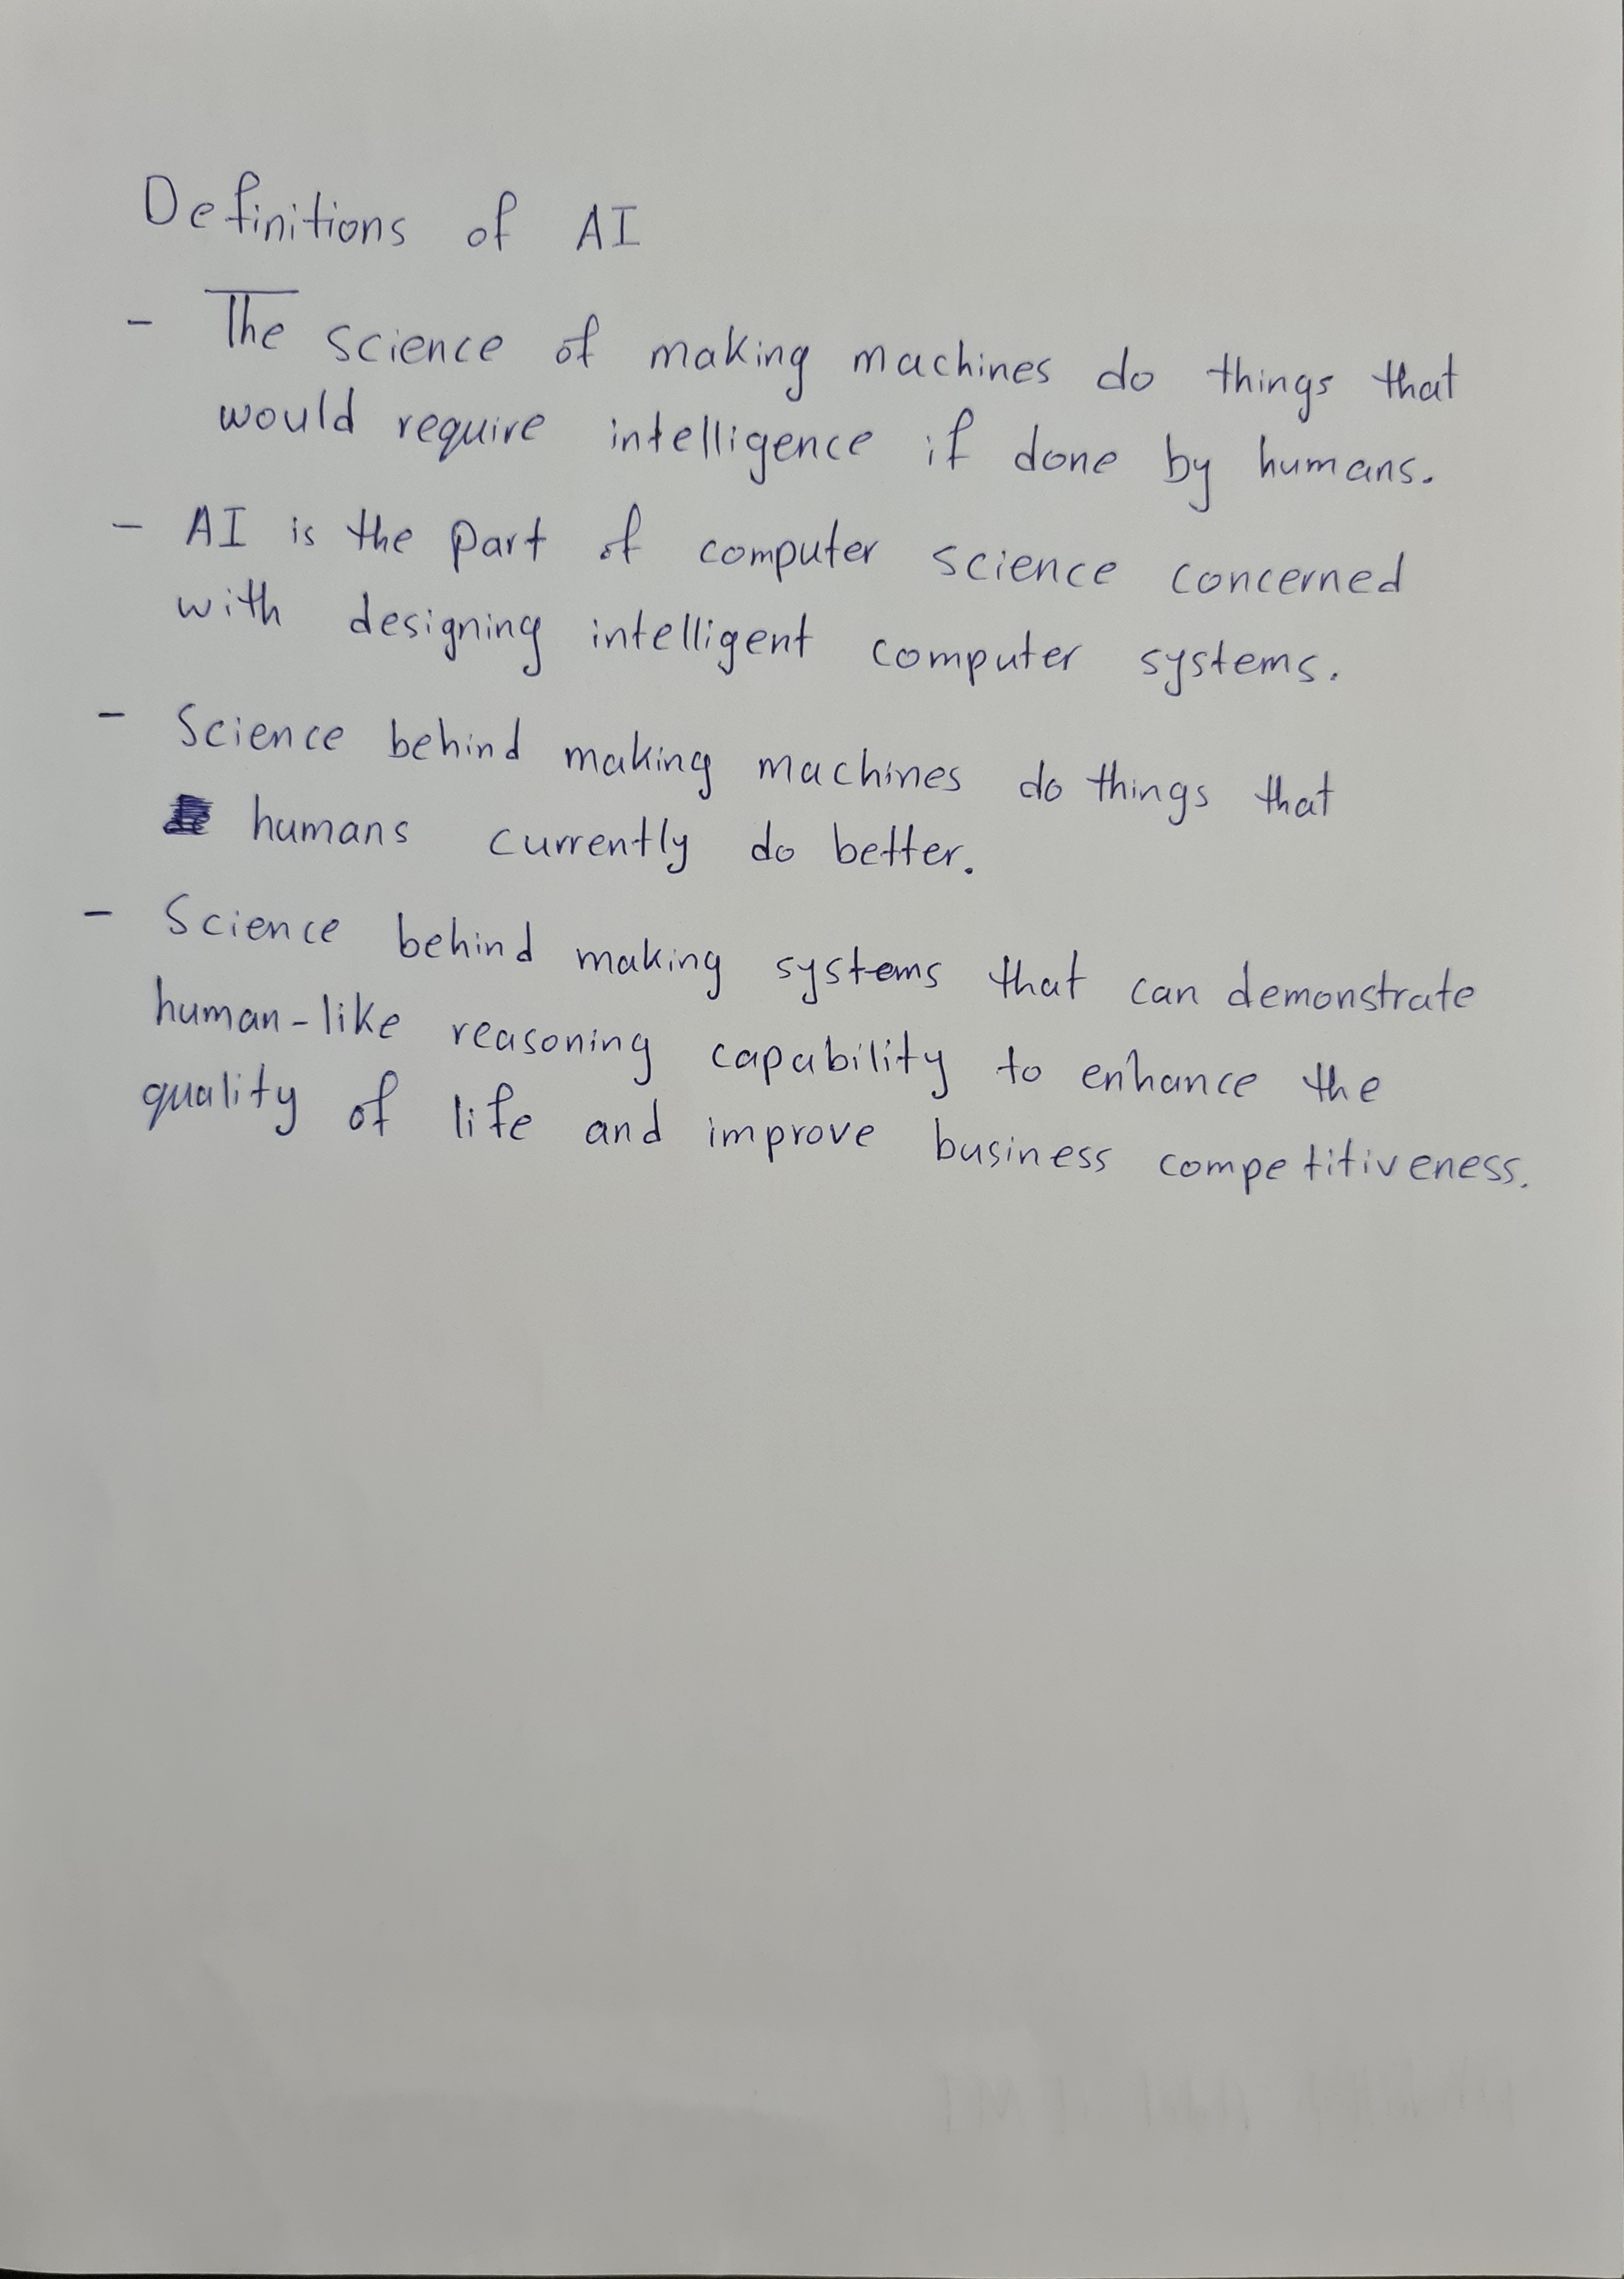 Definitions of AI
- The science of making machines do things that
would require intelligence if done by humans.
- AI is the part of computer science concerned
with designing intelligent computer systems.
- Science behind making machines do things that
humans currently do better.
- Science behind making systems that can demonstrate
human-like reasoning capability to enhance the
quality of life and improve business competitiveness.